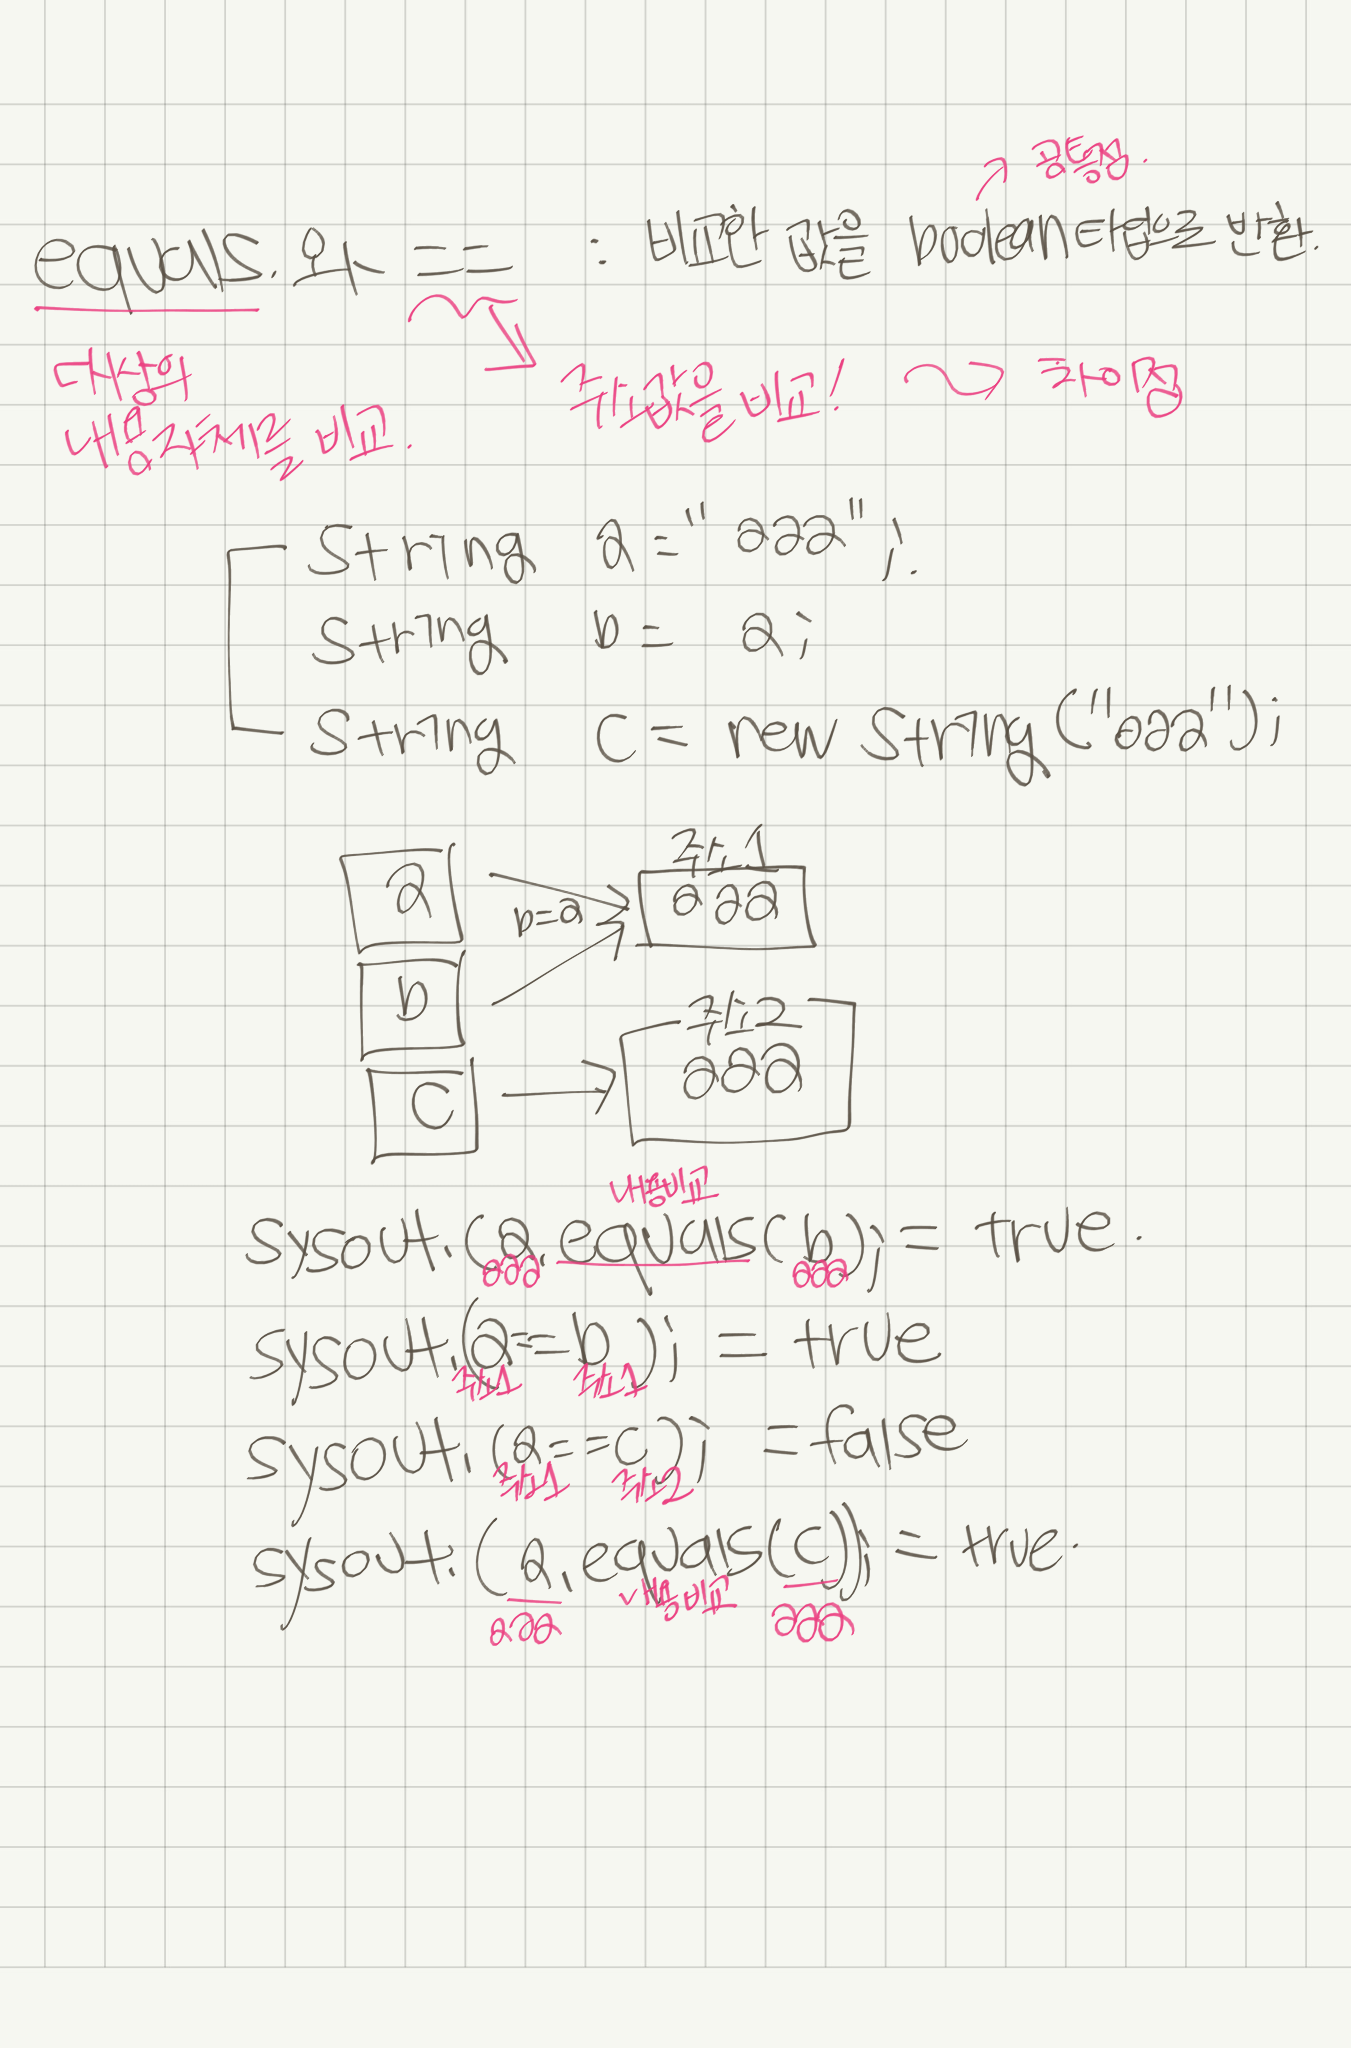 공통점.
equals. 와 == : 비교한 값을 boolean타입으로 반환.
대상의
내용자체를 비교.
주소값을 비교! 차이점
String a = "aaa";.
String b = a;
String c = new String("aaa");
a
b=a
주소1
aaa
b
주소2
aaa
c
내용비교
sysout.(a.equals(b); = true.
aaa aaa
sysout.(a==b); = true
주소1 주소1
sysout.(a==c); = false
주소1 주소2
sysout.(a.equals(c)); = true.
aaa 내용비교 aaa